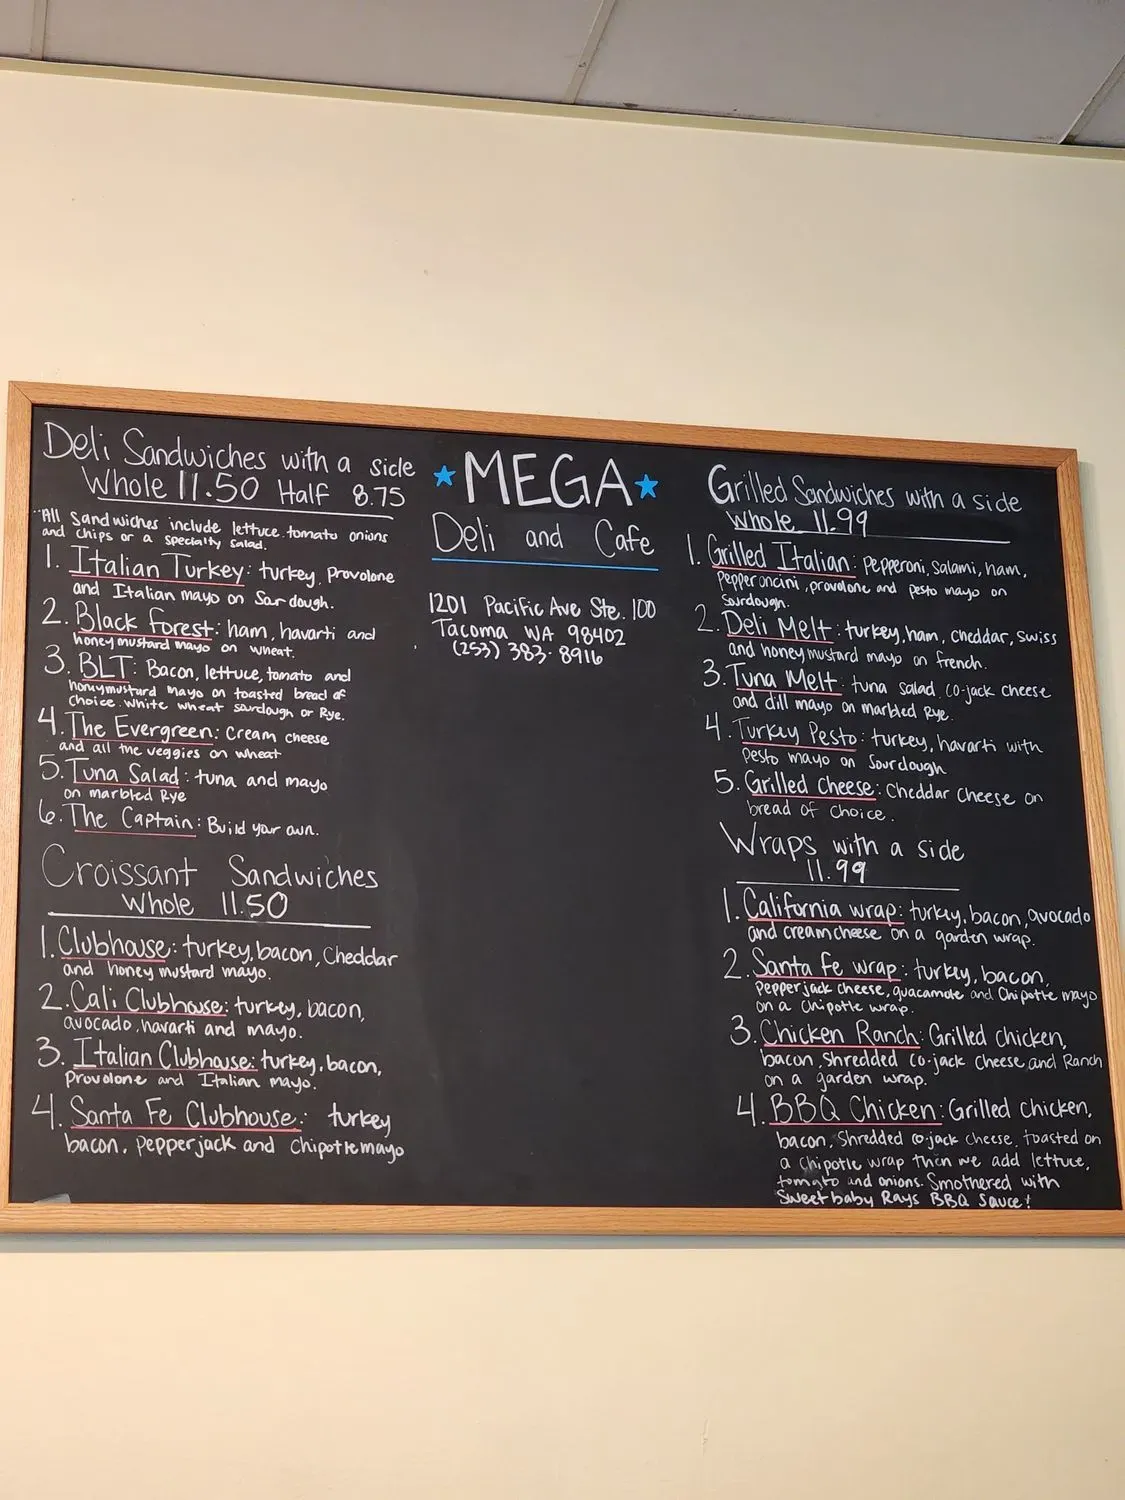 Deli Sandwiches with a side
Whole 11.50 Half 8.75
"All Sandwiches include lettuce tomato onions
and chips or a specialty salad.
1. Italian Turkey: turkey, Provolone
and Italian mayo on Sour dough.
2. Black forest: ham, havarti and
honey mustard mayo on wheat.
3. BLT: Bacon, lettuce, tomato and
honeymustard mayo on toasted bread of
choice. white wheat sourdough or Rye.
4. The Evergreen: Cream cheese
and all the veggies on wheat
5. Tuna Salad: tuna and mayo
on marbled Rye
6. The Captain: Build your own.
Croissant Sandwiches
Whole 11.50
1. Clubhouse: turkey, bacon, Cheddar
and honey mustard mayo.
2. Cali Clubhouse: turkey, bacon,
avocado, havarti and mayo.
3. Italian Clubhouse: turkey, bacon,
Provolone and Italian mayo.
4. Santa Fe Clubhouse: turkey
bacon, pepperjack and chipotle mayo
MEGA
Deli and Cafe
1201 Pacific Ave Ste. 100
Tacoma WA 98402
(253) 383-8916
Grilled Sandwiches with a side
Whole 11.99
1. Grilled Italian: pepperoni, salami, ham,
Pepperoncini, provolone and pesto mayo on
Sourdough.
2. Deli Melt: turkey, ham, cheddar, swiss
and honey mustard mayo on french.
3. Tuna Melt: tuna salad, co-jack cheese
and dill mayo on marbled Rye.
4. Turkey Pesto: turkey, havarti with
pesto mayo on Sourdough
5. Grilled Cheese: Cheddar cheese on
bread of choice.
Wraps with a side
11.99
1. California wrap: turkey, bacon, avocado
and creamcheese on a garden wrap.
2. Santa Fe wrap: turkey, bacon,
Pepperjack cheese, guacamole and Chipotle mayo
on a chipotle wrap.
3. Chicken Ranch: Grilled chicken,
bacon, shredded co-jack cheese and Ranch
on a garden wrap.
4. BBQ Chicken: Grilled chicken,
bacon, Shredded co-jack cheese, toasted on
a chipotle wrap then we add lettuce,
tomato and onions. Smothered with
Sweet baby Rays BBQ Sauce!